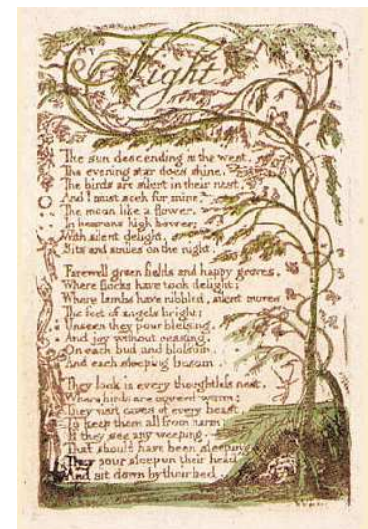 Night
The sun descending in the west,
The evening star does shine,
The birds are silent in their nest,
And I must seek for mine,
The moon like a flower,
In heavens high bower;
With silent delight,
Sits and smiles on the night.
Farewell green fields and happy groves,
Where flocks have took delight;
Where lambs have nibbled, silent moves
The feet of angels bright;
Unseen they pour blessing,
And joy without ceasing,
On each bud and blossom,
And each sleeping bosom.
They look in every thoughtless nest,
Where birds are coverd warm;
They visit caves of every beast,
To keep them all from harm;
If they see any weeping,
That should have been sleeping
They pour sleep on their head
And sit down by their bed.